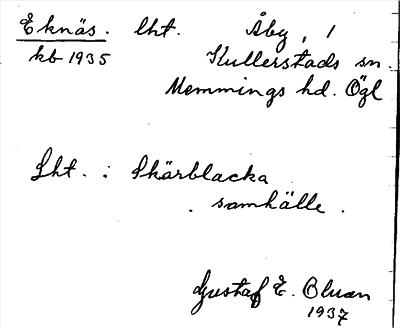 Eknäs. lht. Åby, 1
kb 1935 Kullerstads sn.
Memmings hd. Ögl
Lht. : Skärblacka
samhälle.
Gustaf E. Bluan
1937